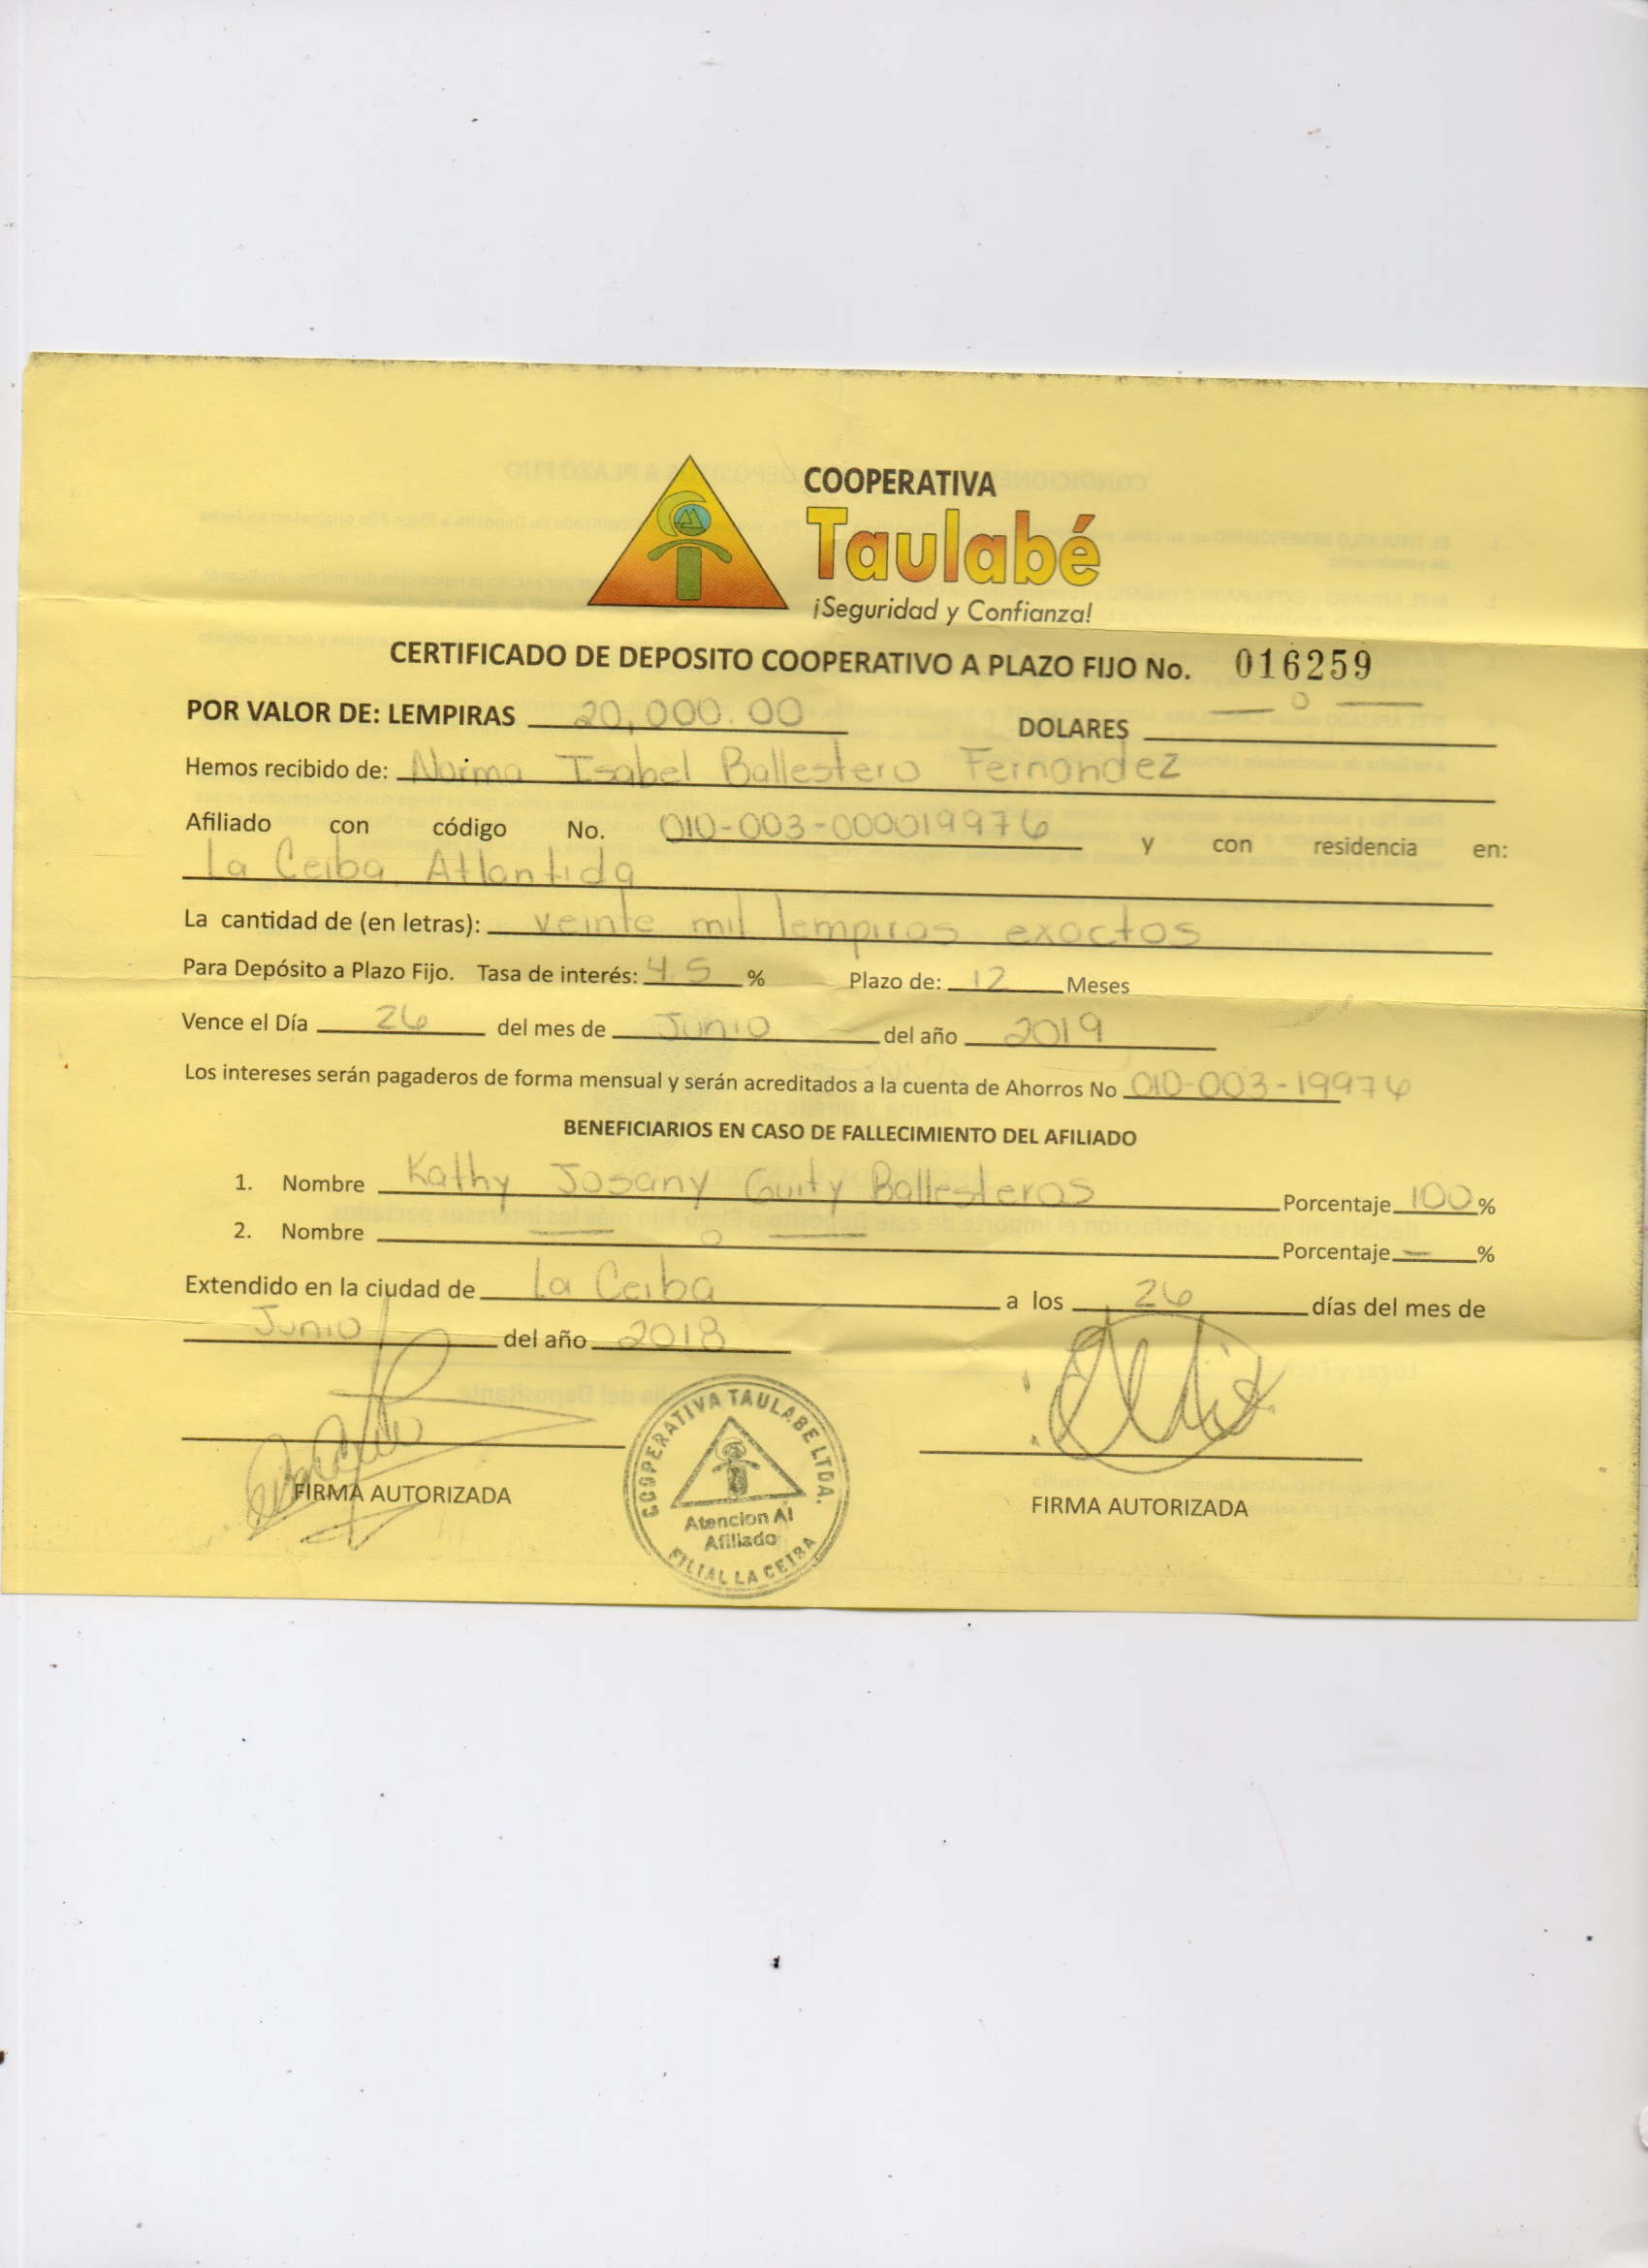 COOPERATIVA
Taulabé
¡Seguridad y Confianza!
CERTIFICADO DE DEPOSITO COOPERATIVO A PLAZO FIJO No. 016259
POR VALOR DE: LEMPIRAS 20,000.00 DOLARES — 0 —
Hemos recibido de: Norma Isabel Ballestero Fernandez
Afiliado con código No. 010-003-000019976 y con residencia en:
La Ceiba, Atlantida
La cantidad de (en letras): veinte mil lempiras exactos
Para Depósito a Plazo Fijo. Tasa de interés: 4.5 % Plazo de: 12 Meses
Vence el Día 26 del mes de Junio del año 2019
Los intereses serán pagaderos de forma mensual y serán acreditados a la cuenta de Ahorros No 010-003-19976
BENEFICIARIOS EN CASO DE FALLECIMIENTO DEL AFILIADO
1. Nombre Kathy Josany Guity Ballesteros Porcentaje 100 %
2. Nombre — 0 — Porcentaje — %
Extendido en la ciudad de La Ceiba a los 26 días del mes de
Junio del año 2018
FIRMA AUTORIZADA
COOPERATIVA TAULABE LTDA.
Atencion Al
Afiliado
FILIAL LA CEIBA
FIRMA AUTORIZADA